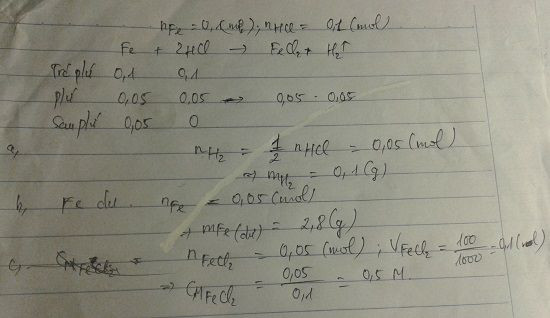 nFe = 0,1(mol); nHCl = 0,1 (mol)
Fe + 2HCl → FeCl2 + H2↑
Trc pứ 0,1 0,1
pứ 0,05 0,05 → 0,05 - 0,05
Sau pứ 0,05 0
a, nH2 = 1/2 nHCl = 0,05 (mol)
⇒ mH2 = 0,1 (g)
b, Fe dư. nFe = 0,05 (mol)
⇒ mFe(dư) = 2,8 (g)
c, nFeCl2 = 0,05 (mol); VFeCl2 = 100/1000 = 0,1
⇒ CMFeCl2 = 0,05/0,1 = 0,5 M.